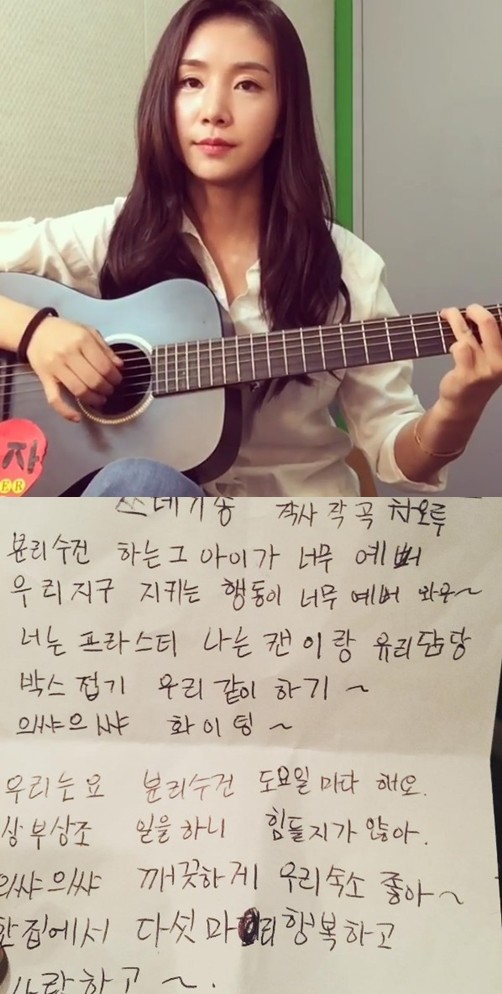 자
ER
쓰레기송 작사 작곡 차오루
분리수건 하는 그 아이가 너무 예뻐
우리지구 지귀는 행동이 너무 예뻐
너는 프라스티 나는 캔이랑 유리담당
박스접기 우리 같이 하기~
으쌰으쌰 화이팅~
우리는요 분리수건 도요일마다 해요.
상부상조 일을 하니 힘들지가 않아.
으쌰으쌰 깨끗하게 우리숙소 좋아~
한집에서 다섯 마리 행복하고
사랑하고~.